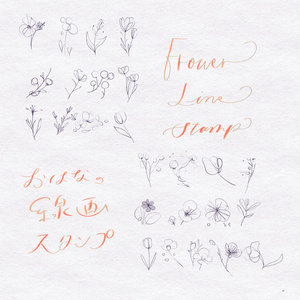 Flower
Line
stamp
おはなの
線画
スタンプ